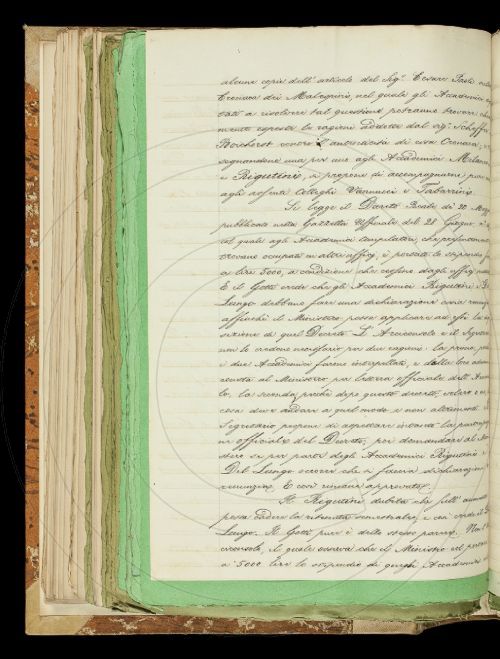 alcune copie dell'articolo del Sig.r Cesare Paoli
Cronaca dei Malespini, nel quale gli Accademici
tati a risolvere tal questione potranno trovare
mente esposte le ragioni addotte dal sig.r Scheffer
Boichorst contro l'autenticità di essa Cronaca,
segnandone una per uno agli Accademici Milanesi
e Rigutini, si propone di accompagnarne
agli assenti Colleghi Vannucci e Tabarrini.
Si legge il Decreto Reale di 20 Maggio
pubblicato nella Gazzetta Ufficiale del 28 Giugno,
col quale agli Accademici compilatori, che presentemente
trovano occupati in altri uffici, è portato lo stipendio
a lire 5000, a condizione che cessino dagli uffici
E il Gotti crede che gli Accademici Rigutini e Del
Lungo debbano fare una dichiarazione
affinchè il Ministero possa applicare ad essi la
sizione di quel Decreto. L'Arciconsolo e il Segretario
non lo credono necessario per due ragioni: la prima,
i due Accademici furono interpellati, e della loro
venuta al Ministero per lettera officiale dell'
lo, la seconda, perchè dopo questo decreto,
cosa deve andare a quel modo e non altrimenti. Il
Segretario propone di aspettare intanto la
ne officiale del Decreto, poi domandare al
stero se per parte degli Accademici Rigutini e
Del Lungo occorre che si faccia dichiarazione
rinunzia. E così rimane approvato.
Il Rigutini dubita che sull'aumento
possa cadere la ritenuta e così crede il Del
Lungo. Il Gotti pure è dello stesso parere.
ciconsolo, il quale osserva che il Ministero nel portare
a 5000 lire lo stipendio di questi Accademici